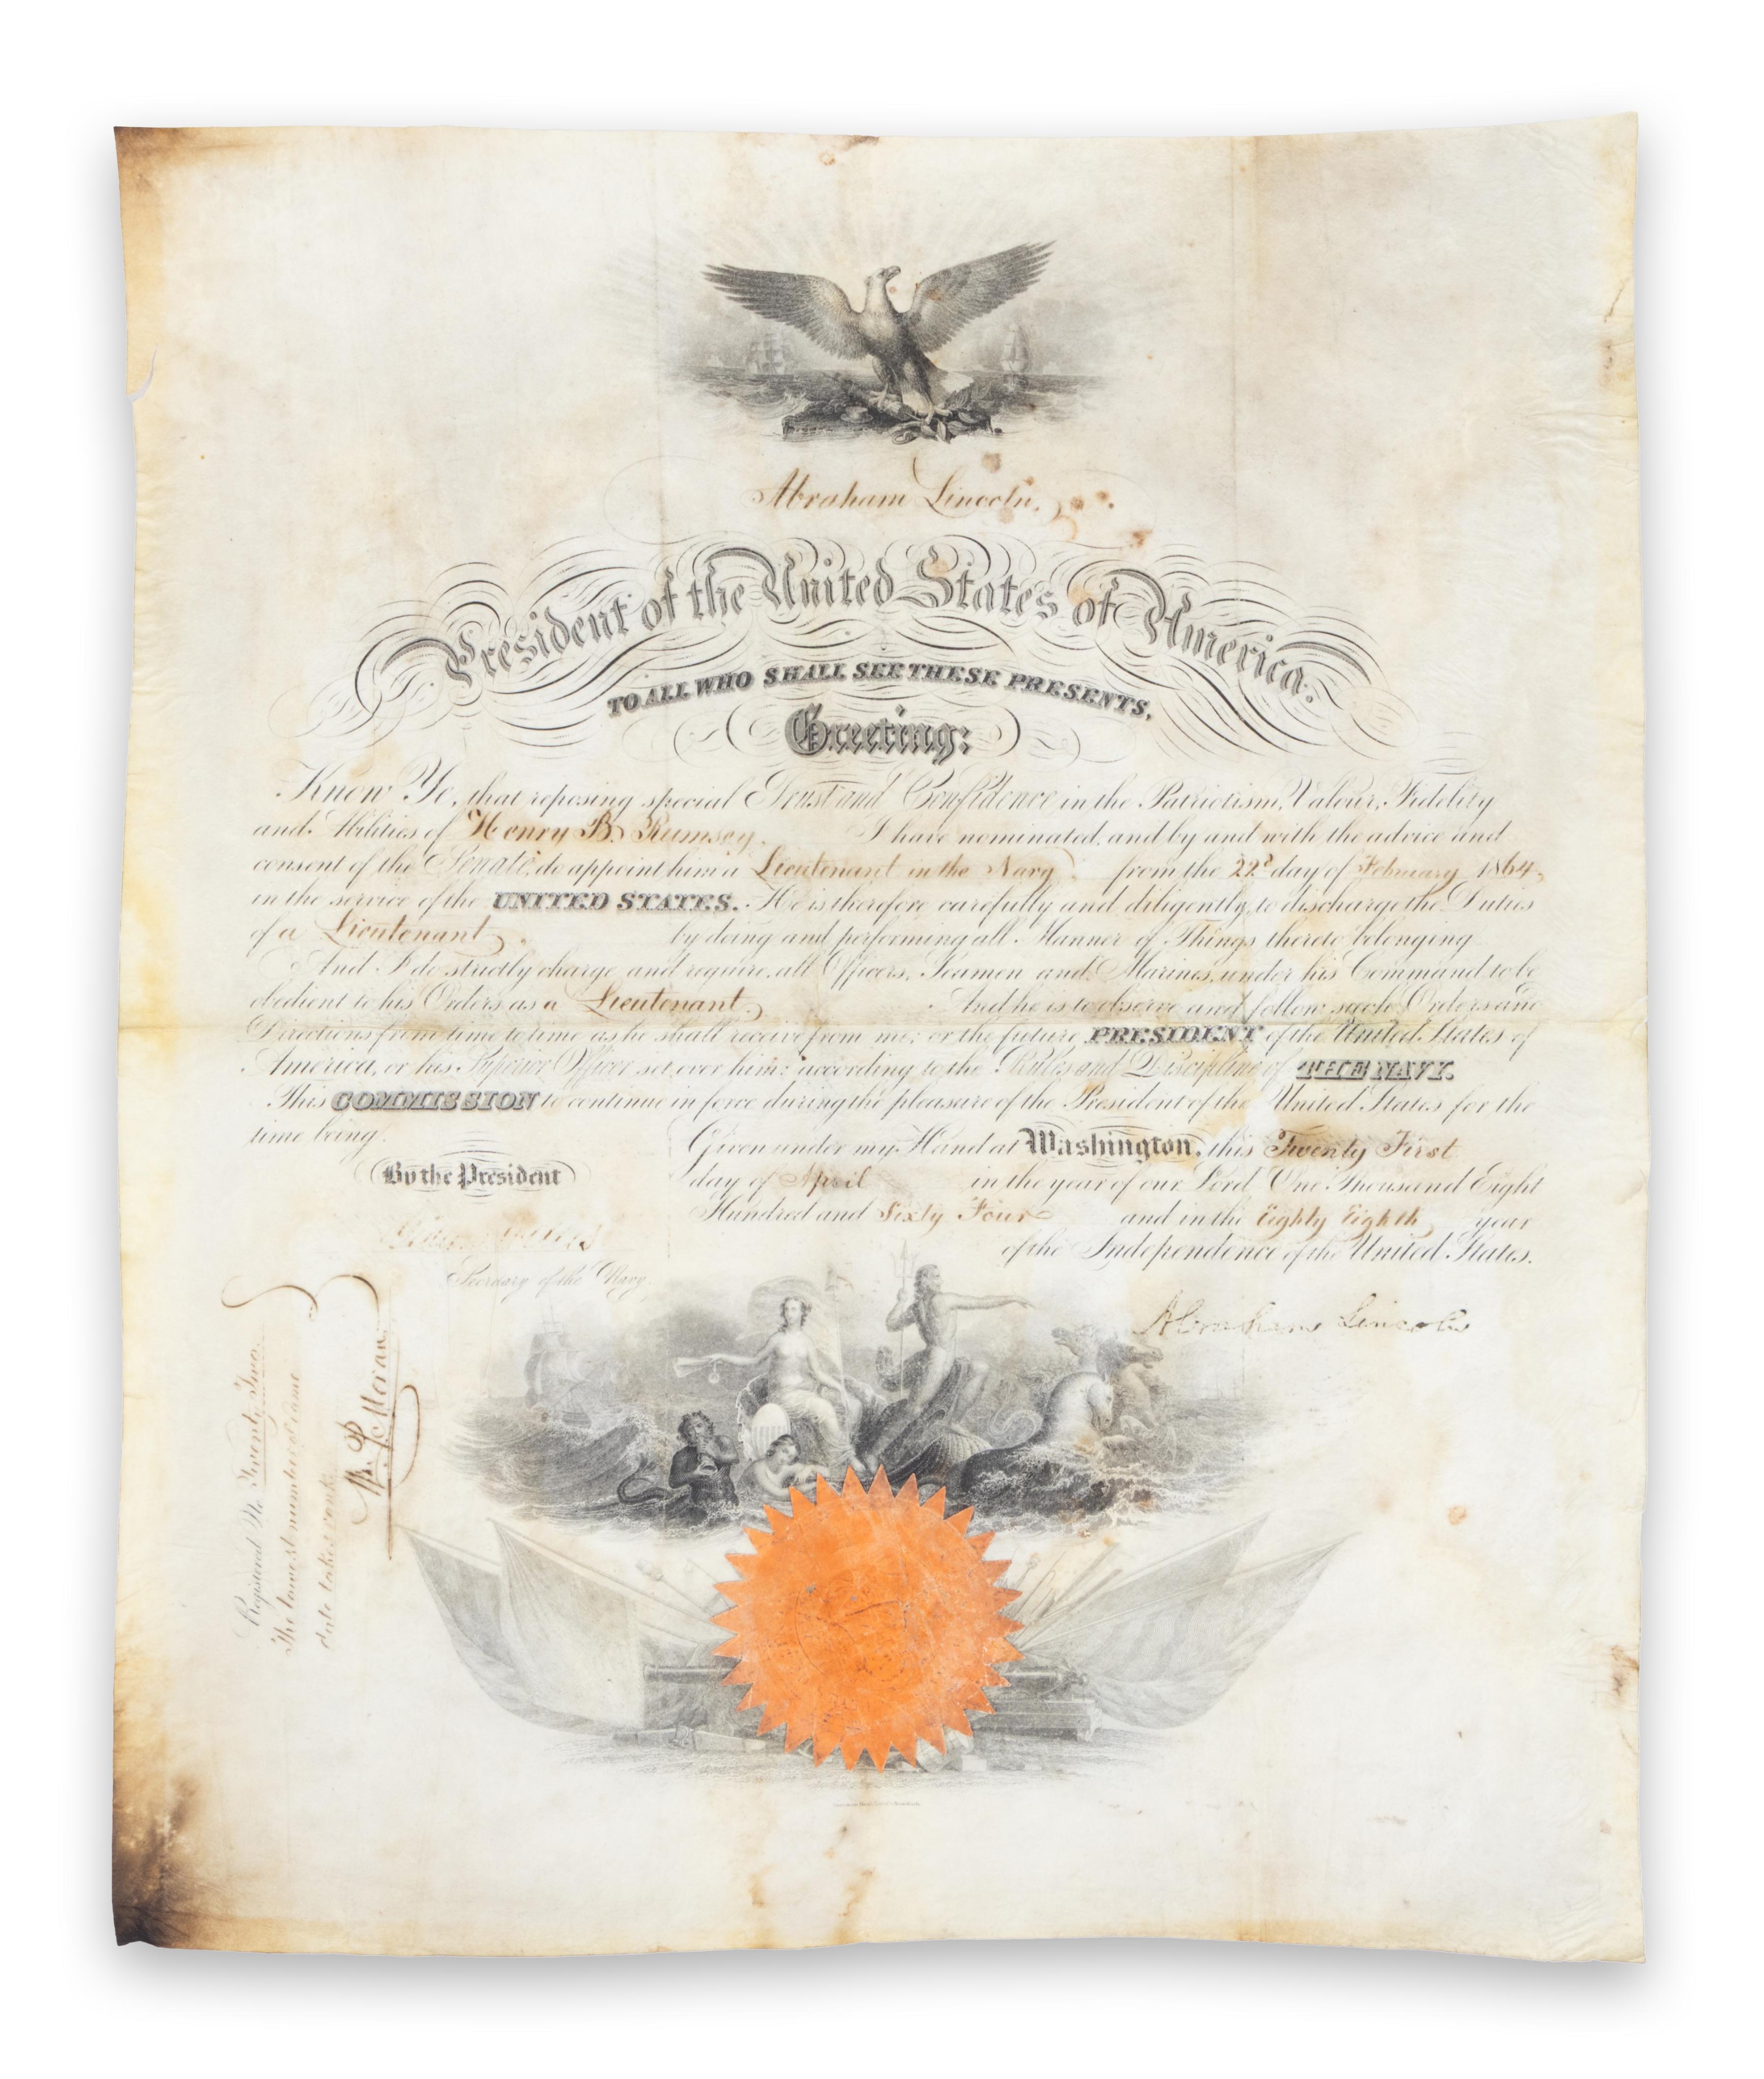 Abraham Lincoln,
President of the United States of America.
TO ALL WHO SHALL SEE THESE PRESENTS,
Greeting:
Know Ye, that reposing special Trust and Confidence in the Patriotism, Valour, Fidelity
and Abilities of Henry B. Rumsey, I have nominated, and by and with the advice and
consent of the Senate, do appoint him a Lieutenant in the Navy from the 22d day of February 1864,
in the service of the UNITED STATES. He is therefore carefully and diligently to discharge the Duties
of a Lieutenant, by doing and performing all Manner of Things thereto belonging
And I do strictly charge and require all Officers, Seamen and Marines, under his Command to be
obedient to his Orders as a Lieutenant, And he is to observe and follow such Orders and
Directions from time to time as he shall receive from me; or the future PRESIDENT of the United States of
America, or his Superior Officer set over him; according to the Rules and Discipline of THE NAVY.
This COMMISSION to continue in force during the pleasure of the President of the United States for the
time being.
Given under my Hand at Washington, this Twenty First
day of April in the year of our Lord One Thousand Eight
Hundred and Sixty Four and in the Eighty Eighth year
of the Independence of the United States.
By the President
Secretary of the Navy.
Abraham Lincoln
Registered No Twenty Two.
The lowest number of same
date takes rank.